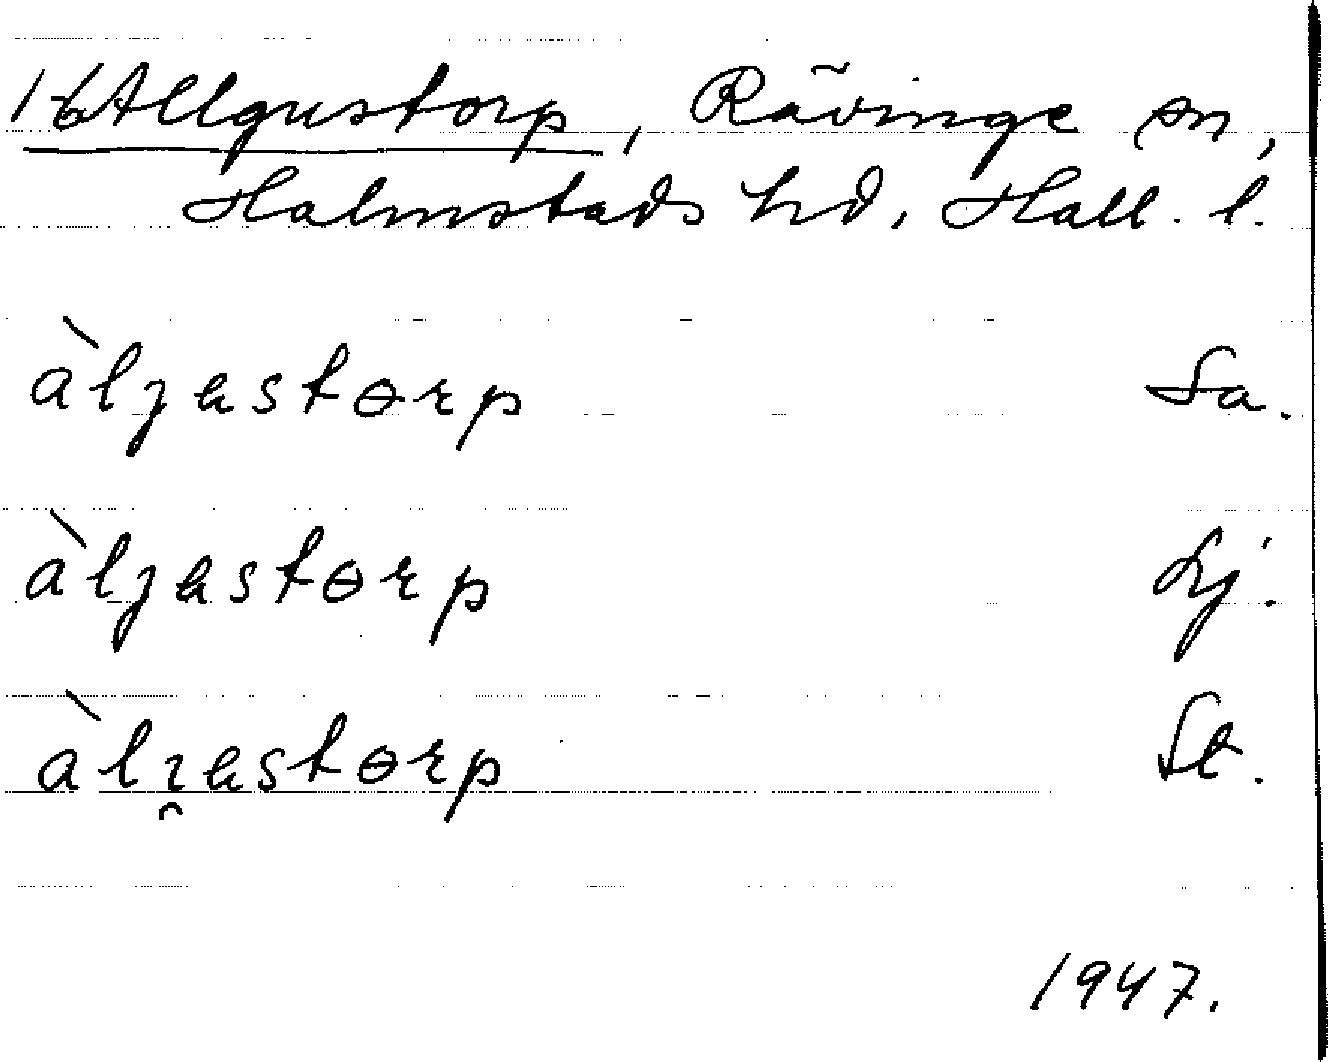 1/6 Allgustorp, Rävinge sn,
Halmstads hd, Hall. l.
àljɐstɵrp Sa.
àljɐstɵrp Lj.
àlı̯ɐstɵrp St.
1947.